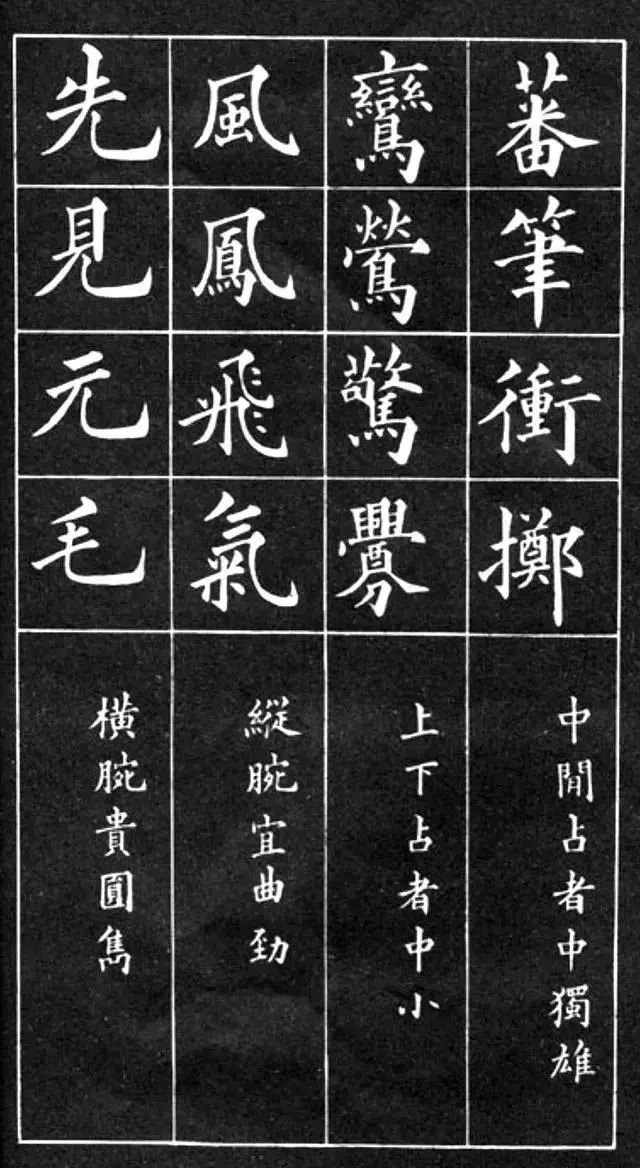 蕃筆衝擲
中閒占者中獨雄
鸞鶯驚釁
上下占者中小
風鳳飛氣
縱腕宜曲勁
先見元毛
橫腕貴圓隽